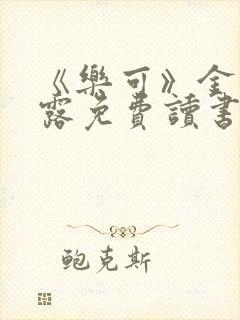 《樂可》金
露免費讀書
鲍克斯